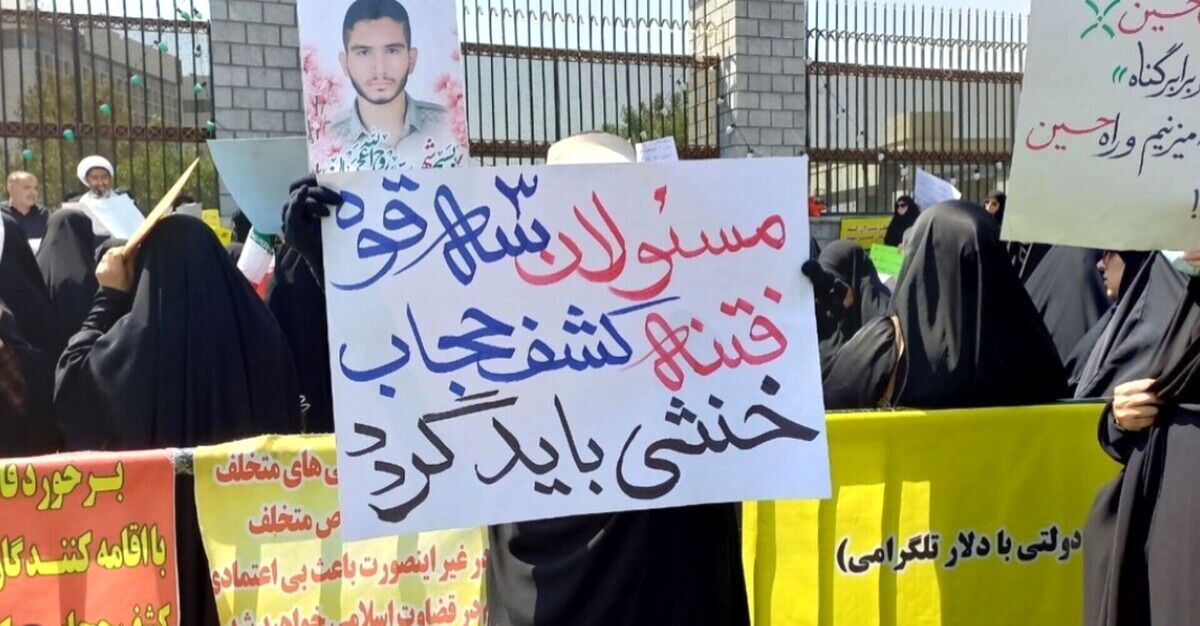 مسئولان ۳ سه قوه
فتنه کشف حجاب
خنثی باید گردد
حسین
برابر گناه"
میزنیم و راه حسین
شهید
بر خورد قا
با اقامه کنندگان
کشف حجاب
ی های متخلف
ص متخلف
در غیر اینصورت باعث بی اعتمادی
در قضاوت اسلامی خواهید شد
دولتی با دلار تلگرامی)